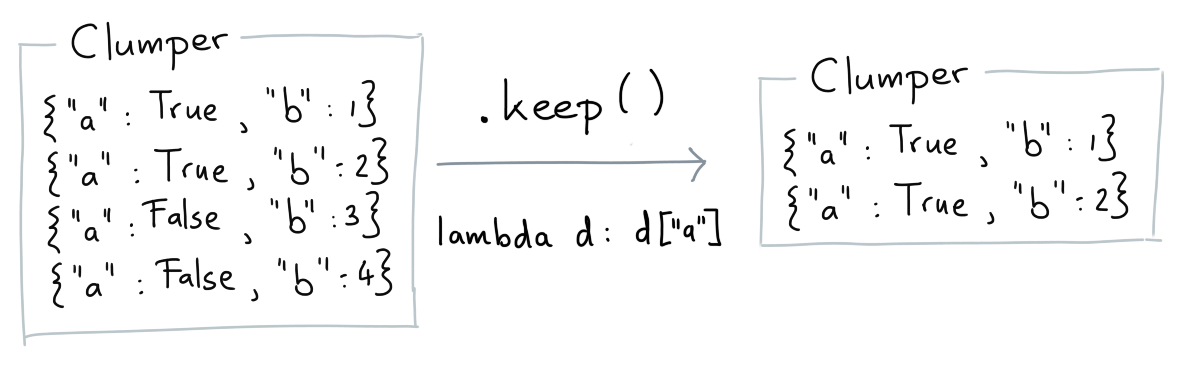 Clumper
{"a" : True , "b" : 1}
{"a" : True , "b" : 2}
{"a" : False , "b" : 3}
{"a" : False , "b" : 4}
.keep()
lambda d: d["a"]
Clumper
{"a" : True , "b" : 1}
{"a" : True , "b" : 2}